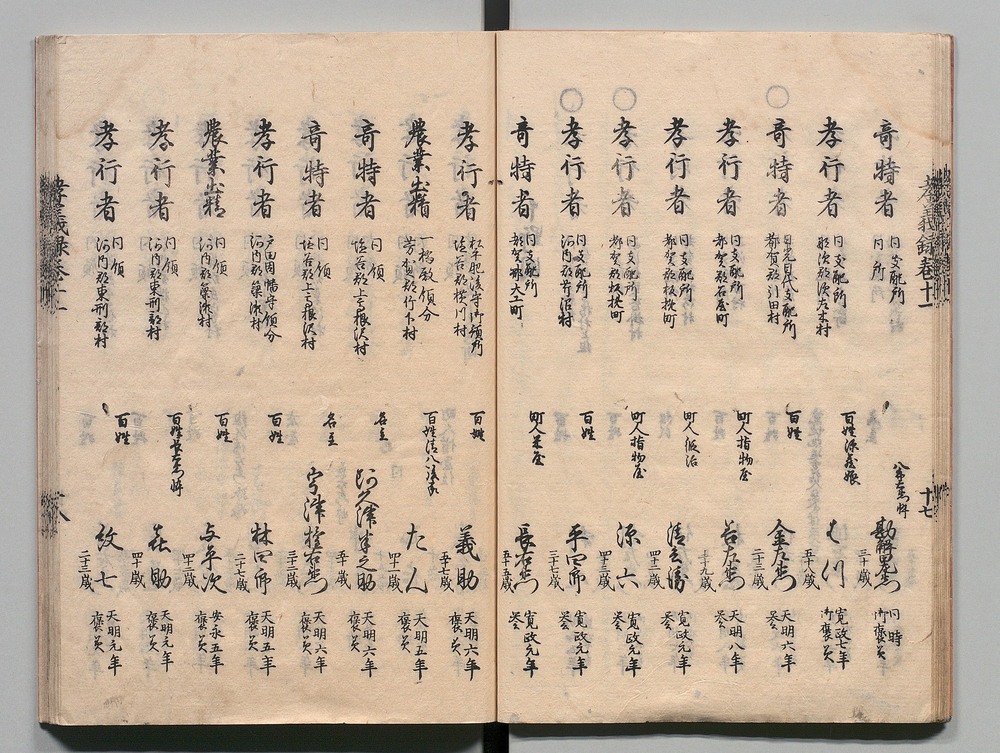 孝義録巻十一
十七
奇特者 同支配所 同所 八郎左衛門忰 三十歳 同時 御褒美
孝行者 同支配所 那須郡須佐木村 百姓源蔵娘 はつ 五十八歳 寛政七年 御褒美
奇特者 日光目代支配所 都賀郡引田村 百姓 金左衛門 二十三歳 天明六年 褒美
孝行者 同支配所 都賀郡石屋町 町人指物屋 吉左衛門 三十九歳 天明八年 褒美
孝行者 同支配所 都賀郡板挽町 町人鍛冶 清兵衛 四十二歳 寛政元年 褒美
孝行者 同支配所 都賀郡板挽町 町人指物屋 源六 四十三歳 寛政元年 褒美
孝行者 同支配所 河内郡芹沼村 百姓 平四郎 四十歳 寛政元年 褒美
奇特者 同支配所 都賀郡大工町 町人米屋 長右衛門 五十五歳 寛政元年 褒美
孝行者 松平肥後守御預所 塩谷郡横川村 百姓 義助 五十七歳 天明六年 褒美
農業出精 一橋殿領分 芳賀郡竹下村 百姓清八後家 たん 四十一歳 天明五年 褒美
奇特者 同領 塩谷郡上高根沢村 名主 阿久津半之助 五十歳 天明六年 褒美
奇特者 同領 塩谷郡上高根沢村 名主 宇津権右衛門 三十三歳 天明六年 褒美
孝行者 戸田因幡守領分 河内郡簗瀬村 百姓 林四郎 二十七歳 天明五年 褒美
農業出精 同領 河内郡簗瀬村 百姓 与平次 四十二歳 安永五年 褒美
孝行者 同領 河内郡東刑部村 百姓 喜助 四十歳 天明元年 褒美
孝行者 同領 河内郡東刑部村 百姓 紋七 二十三歳 天明元年 褒美
孝義録巻十一
十八